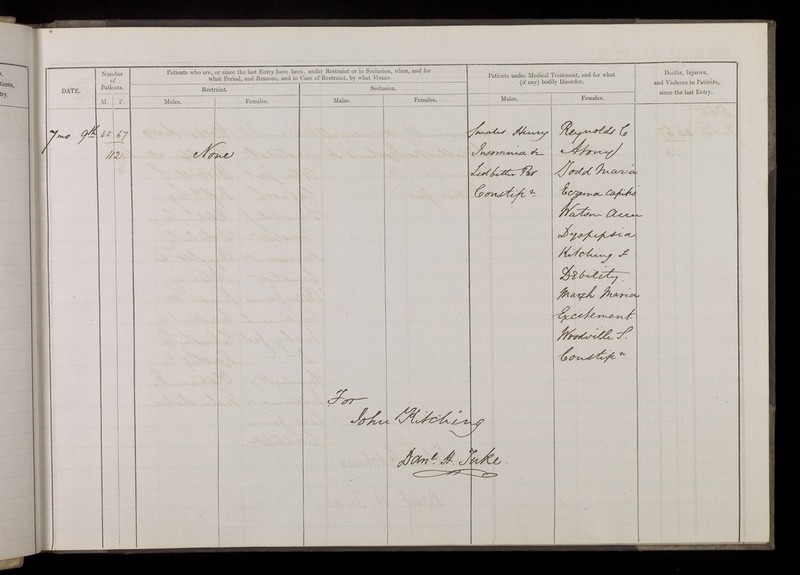 DATE.
Number of Patients.
M. F.
Patients who are, or since the last Entry have been, under Restraint or in Seclusion, when, and for
what Period, and Reasons, and in Case of Restraint, by what Means.
Restraint.
Seclusion.
Males. Females. Males. Females.
Patients under Medical Treatment, and for what
(if any) bodily Disorder.
Males. Females.
Deaths, Injuries,
and Violence to Patients,
since the last Entry.
7 mo 9th 67
112 None
Henry Reynolds C
Insomnia &c
Ledbitter Todd Maria
Constipn Eczema capitis
Watson Ann
Dyspepsia
Kitching
Debility.
Marsh Maria
Excitement.
Woodville S.
Constipn
For
John Kitching
Danl. H. Tuke.